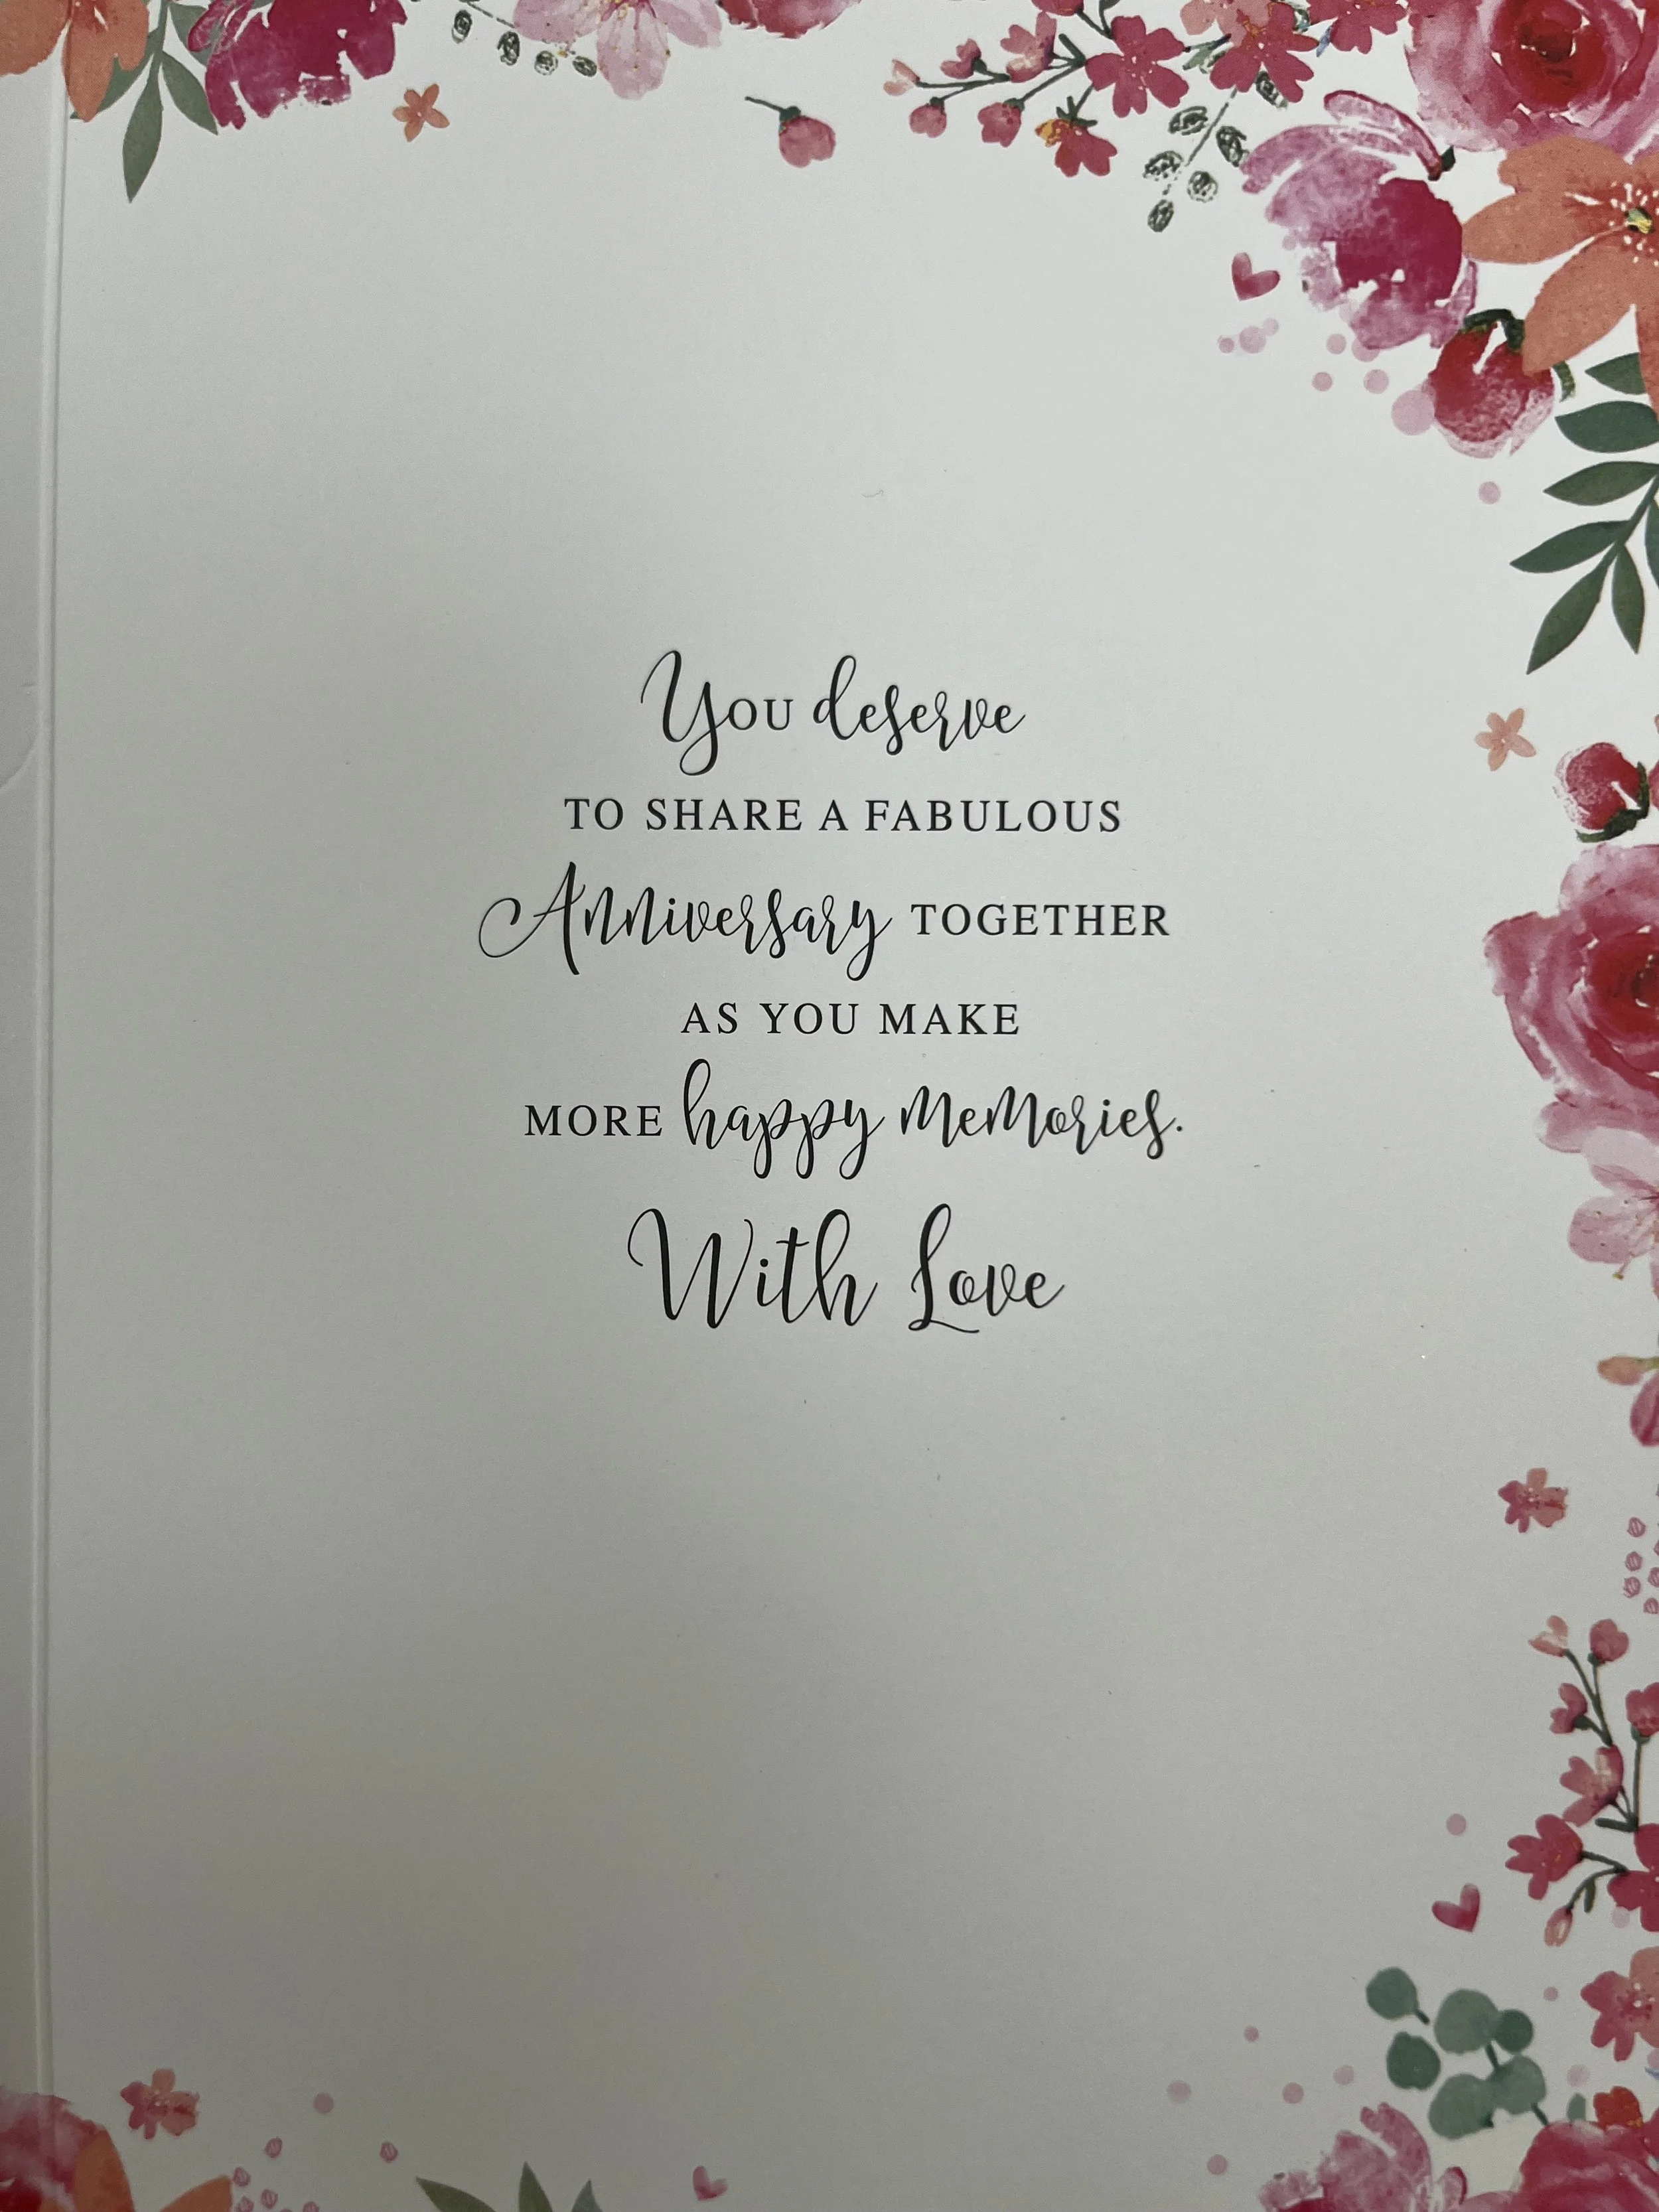 You deserve
TO SHARE A FABULOUS
Anniversary TOGETHER
AS YOU MAKE
MORE happy memories.
With Love